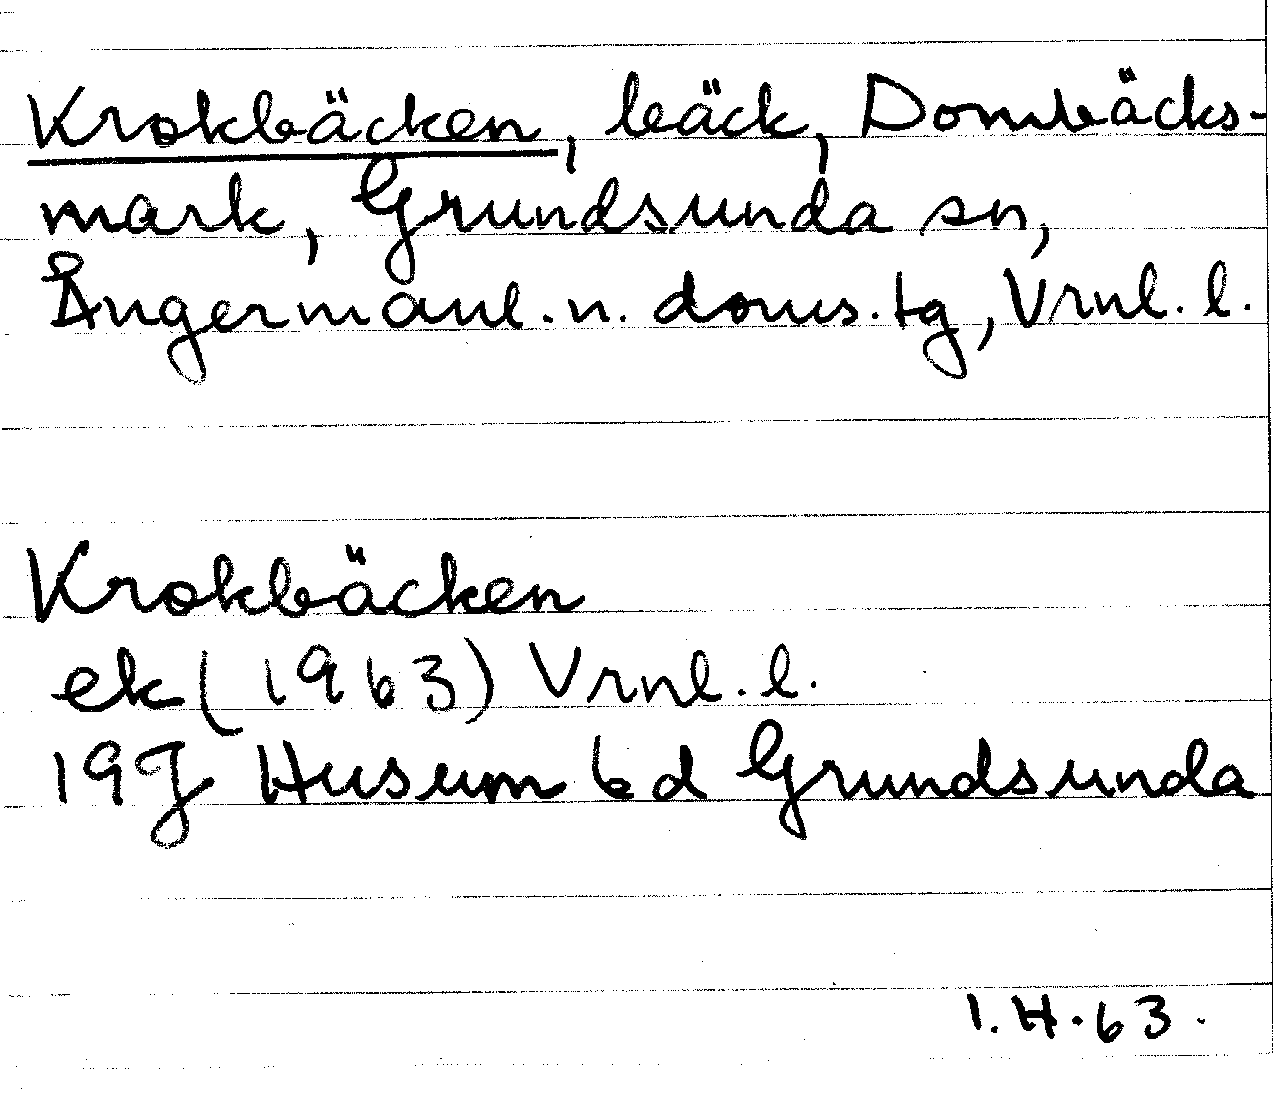 Krokbäcken, bäck, Dombäcks-
mark, Grundsunda sn,
Ångermanl. n. doms. tg, Vrnl. l.
Krokbäcken
ek (1963) Vrnl. l.
19J Husum 6d Grundsunda
I.H. 63.